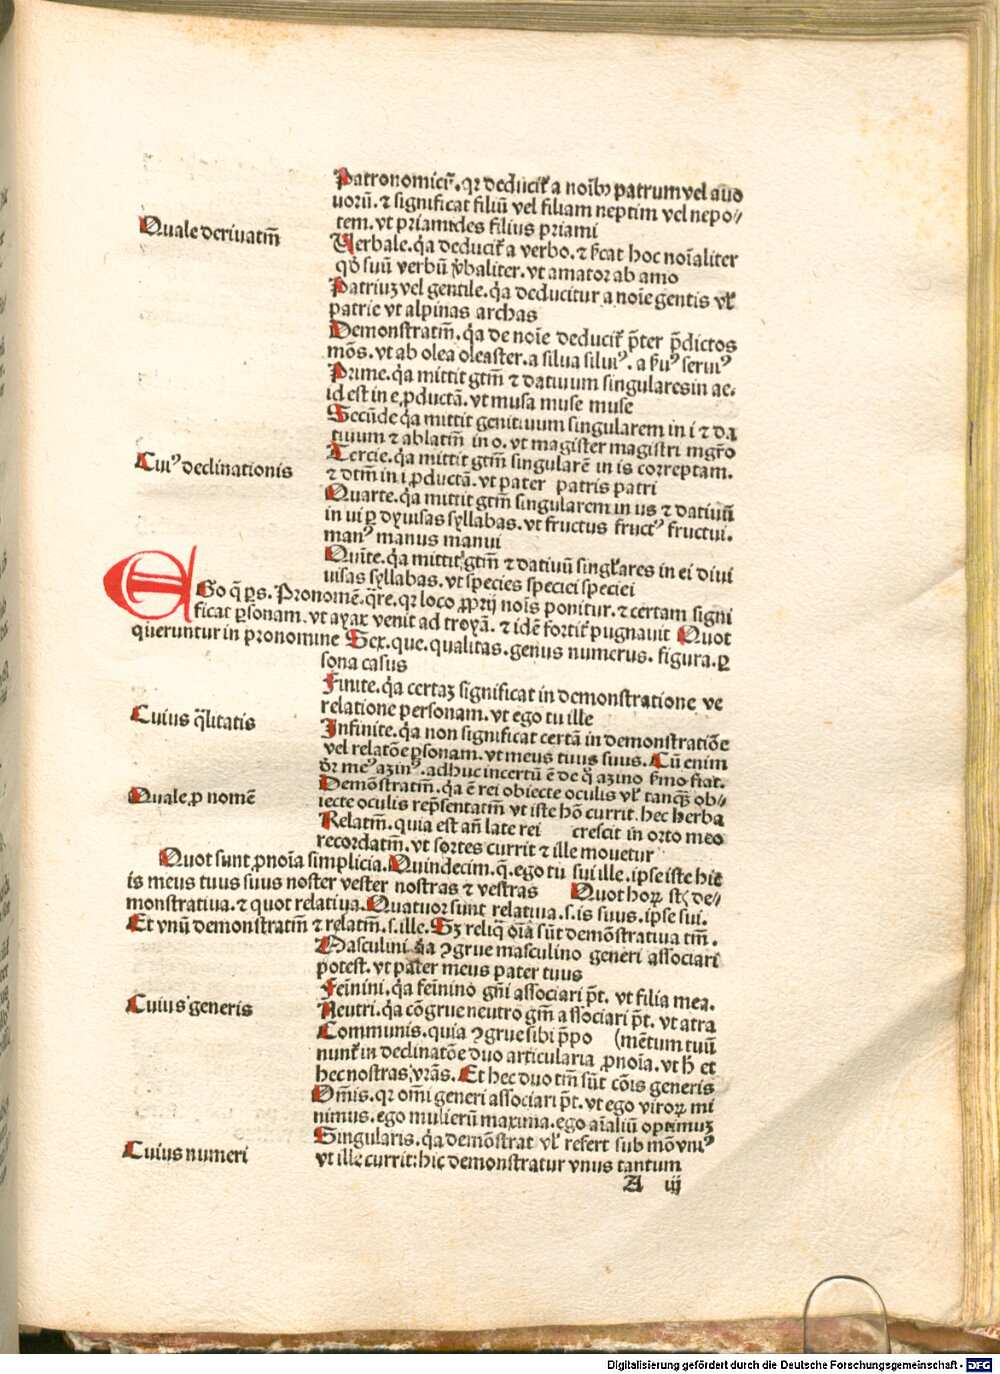 Patronomicū. qꝛ deducit᷑ a noībꝰ patrum vel auo
uorū. ⁊ significat filiū vel filiam neptim vel nepo⸗
tem. vt priamides filius priami
Quale deriuatm̄
Uerbale. q̇a deducit᷑ a verbo. ⁊ sc̄at hoc noīaliter
qd̓ suū verbū v̓baliter. vt amator ab amo
Patriuꝫ vel gentile. q̇a deducitur a noīe gentis vl̓
patrie vt alpinas archas
Demonstratm̄. q̇a de noīe deducit᷑ p̄ter p̄dictos
mōs. vt ab olea oleaster. a silua siluiꝰ. a ẜuꝰ seruiꝰ
Prime. q̇a mittit gtm̄ ⁊ datiuum singulares in ae.
id est in e ꝓductā. vt musa muse muse
Secūde q̇a mittit genitiuum singularem in i ⁊ da
tiuum ⁊ ablatm̄ in o. vt magister magistri mgr̄o
Cuiꝰ declinationis
Tercie. q̇a mittit gtm̄ singularē in is correptam.
⁊ dtm̄ in i ꝓductā. vt pater patris patri
Quarte. q̇a mittit gtm̄ singularem in us ⁊ datiuū
in ui ꝑ dyuisas syllabas. vt fructus fructꝰ fructui.
manꝰ manus manui
Quīte. q̇a mittit gtm̄ ⁊ datiuū singl̓ares in ei diui
uisas syllabas. vt species speciei speciei
EGo q̄ ꝑs. Pronomē. q̄re. qꝛ loco ꝓprij noīs ponitur. ⁊ certam signi
ficat ꝑsonam. vt ayax venit ad troyā. ⁊ idē fortit᷑ pugnauit Quot
queruntur in pronomine Sex. que. qualitas. genus numerus. figura. ꝑ
sona casus
Finite. q̇a certaꝫ significat in demonstratione ve
relatione personam. vt ego tu ille
Cuius q̄litatis
Infinite. q̇a non significat certā in demonstratiōe
vel relatōe ꝑsonam. vt meus tuus suus. Cū enim
dr̄ meꝰ azinꝰ. adhuc incertū ē de q̊ azino ẜmo fiat.
Quale ꝓnomē
Demōstratm̄. q̇a ē rei obiecte oculis vl̓ tanqꝫ ob⸗
iecte oculis rep̄sentatm̄ vt iste hō currit. hec herba
Relatm̄. quia est an̄ late rei crescit in orto meo
recordatm̄. vt sortes currit ⁊ ille mouetur
Quot sunt ꝓnoīa simplicia. Quindecim. q̄. ego tu sui ille. ipse iste hic
is meus tuus suus noster vester nostras ⁊ vestras Quot hoꝝ st̄ de⸗
monstratiua. ⁊ quot relatiua. Quatuor sunt relatiua. s. is suus. ipse sui.
Et vnū demonstratm̄ ⁊ relatm̄. s. ille. Sꝫ reliq̄ oīa sūt demōstratiua tm̄.
Masculini. q̇a ꝯgrue masculino generi associari
potest. vt pater meus pater tuus
Feīnini. q̇a feīnino gn̄i associari pt̄. vt filia mea.
Cuius generis
Neutri. q̇a cōgrue neutro gn̄i associari pt̄. vt atra
Communis. quia ꝯgrue sibi p̄po (mētum tuū
nunt᷑ in declinatōe duo articularia ꝓnoīa. vt h̄ et
hec nostras vr̄as. Et hec duo tm̄ sūt cōis generis
Om̄is. qꝛ om̄i generi associari pt̄. vt ego viroꝝ mi
nimus. ego mulierū maxima. ego aīaliū optimuꝫ
Singularis. q̇a demōstrat vl̓ refert sub mō vniꝰ
Cuius numeri
vt ille currit: hic demonstratur vnus tantum
A iij
Digitalisierung gefördert durch die Deutsche Forschungsgemeinschaft - DFG